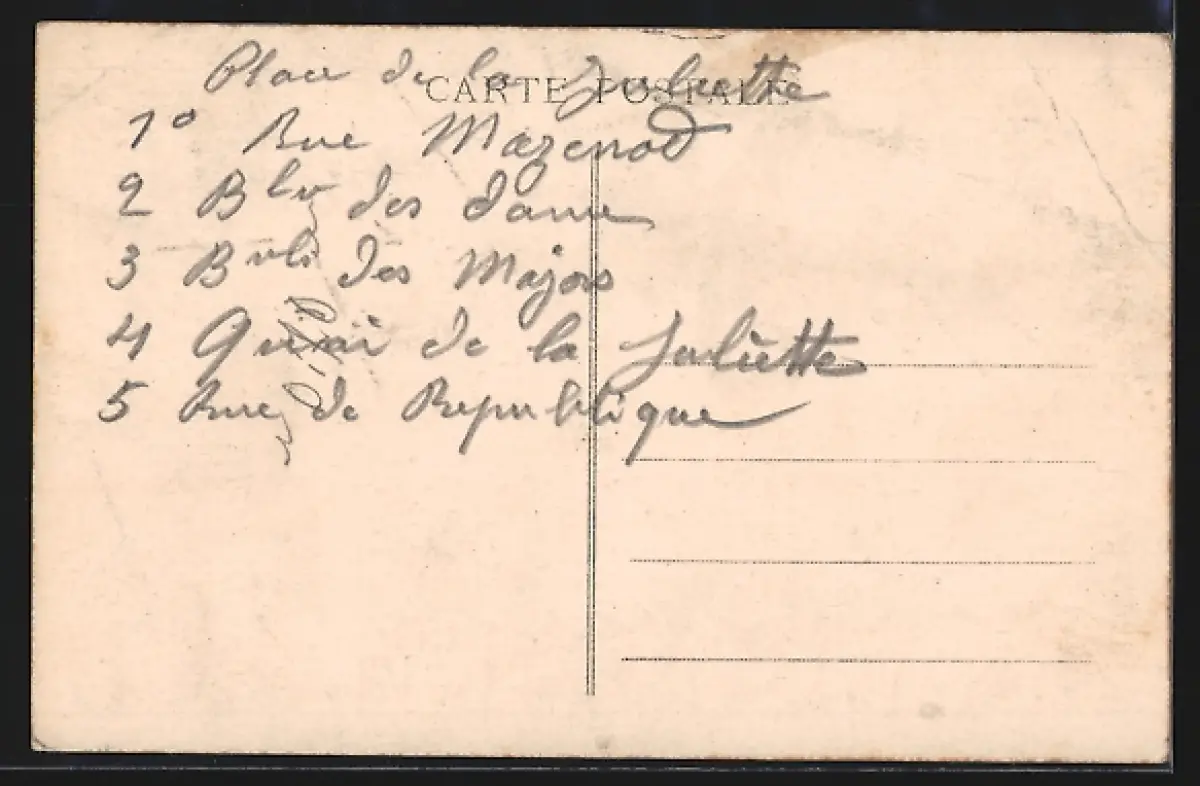 Place de la Juliette
CARTE POSTALE
1° Rue Mazenod
2 Blv des dame
3 Bvli des Majors
4 Quai de la Juliette
5 Rue de Republique